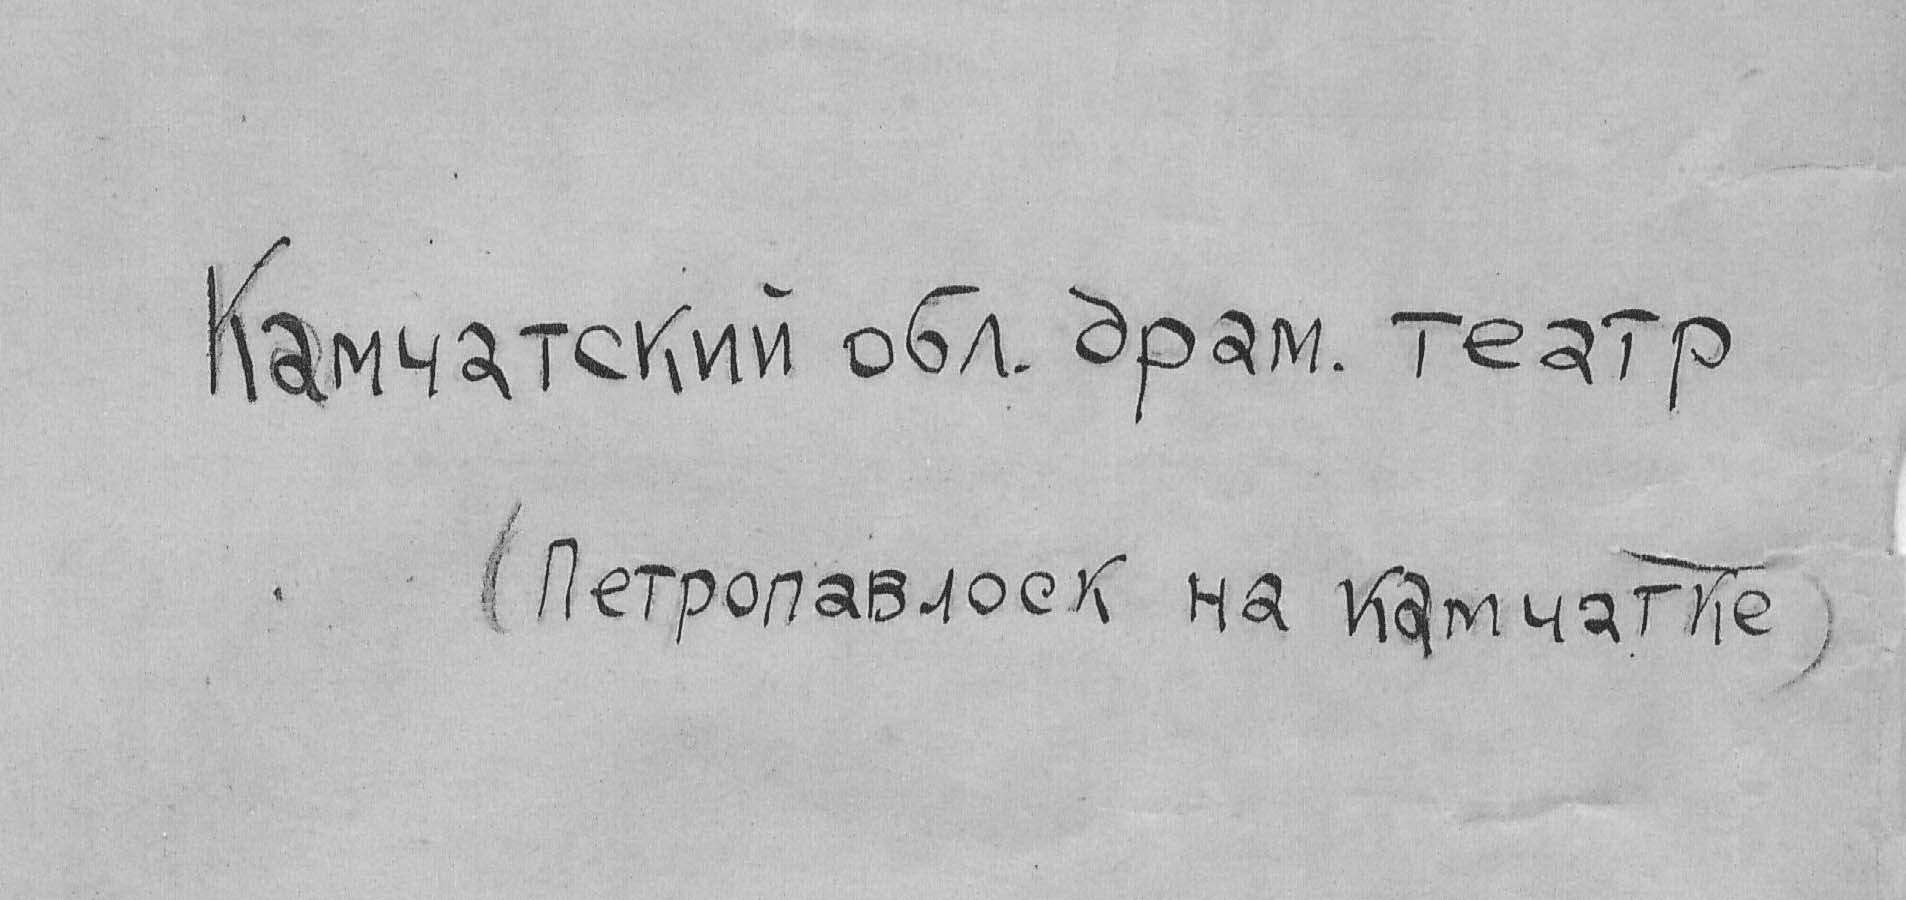 Камчатский обл. драм. театр
(Петропавлоск на камчатке)